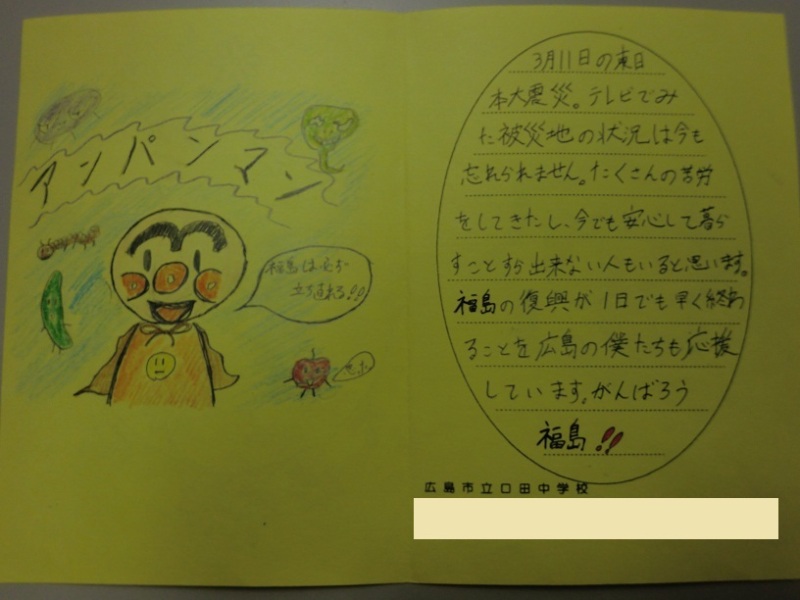 アンパンマン
福島は必ず
立ち直れる!!!
3月11日の東日
本大震災。テレビでみ
た被災地の状況は今も
忘れられません。たくさんの苦労
をしてきたし、今でも安心して暮ら
すことすら出来ない人もいると思います。
福島の復興が1日でも早く終わ
ることを広島の僕たちも応援
しています。がんばろう
福島!!
広島市立口田中学校